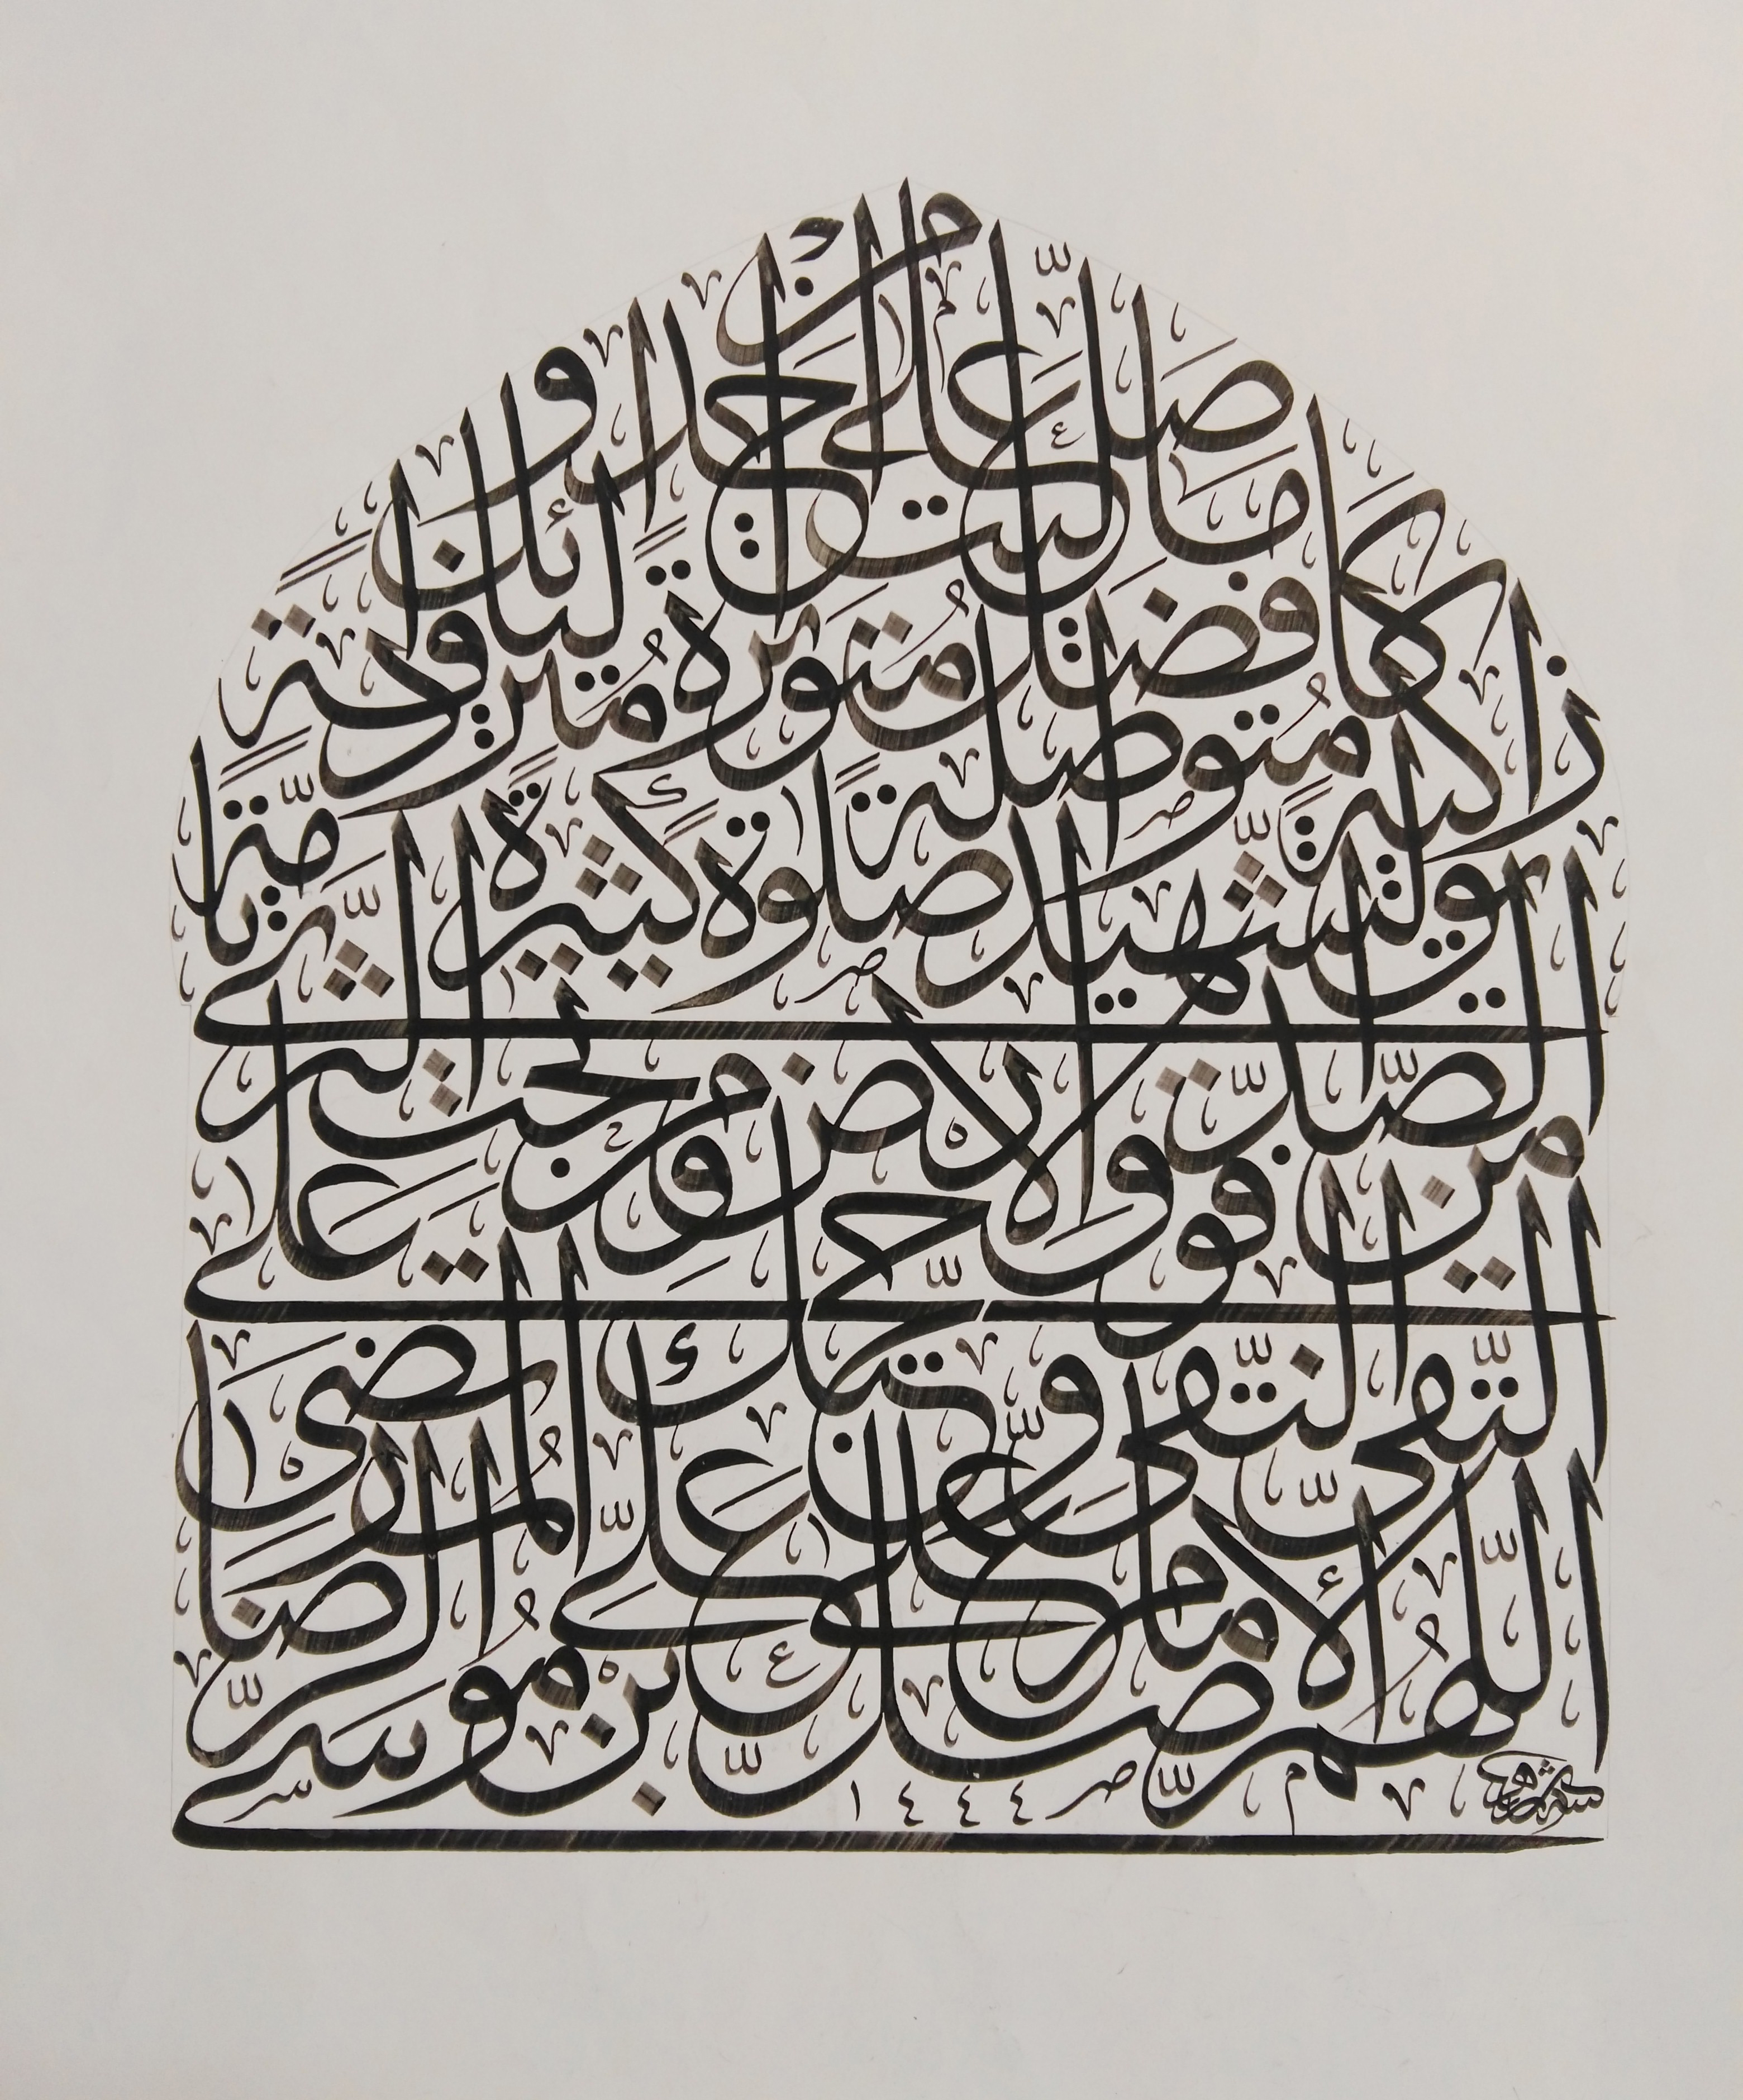 اَللّٰهُمَّ صَلِّ عَلٰى عَلِيِّ بْنِ مُوسَى الرِّضَا الْمُرْتَضٰى
اَلْإِمَامِ التَّقِيِّ النَّقِيِّ وَحُجَّتِكَ عَلٰى
مَنْ فَوْقَ الْأَرْضِ وَمَنْ تَحْتَ الثَّرٰى
اَلصِّدِّيقِ الشَّهِيدِ صَلٰوةً كَثِيرَةً تَامَّةً
زَاكِيَةً مُتَوَاصِلَةً مُتَوَاتِرَةً مُتَرَادِفَةً
كَأَفْضَلِ مَا صَلَّيْتَ عَلٰى أَحَدٍ مِنْ أَوْلِيَائِكَ
١٤٤٤